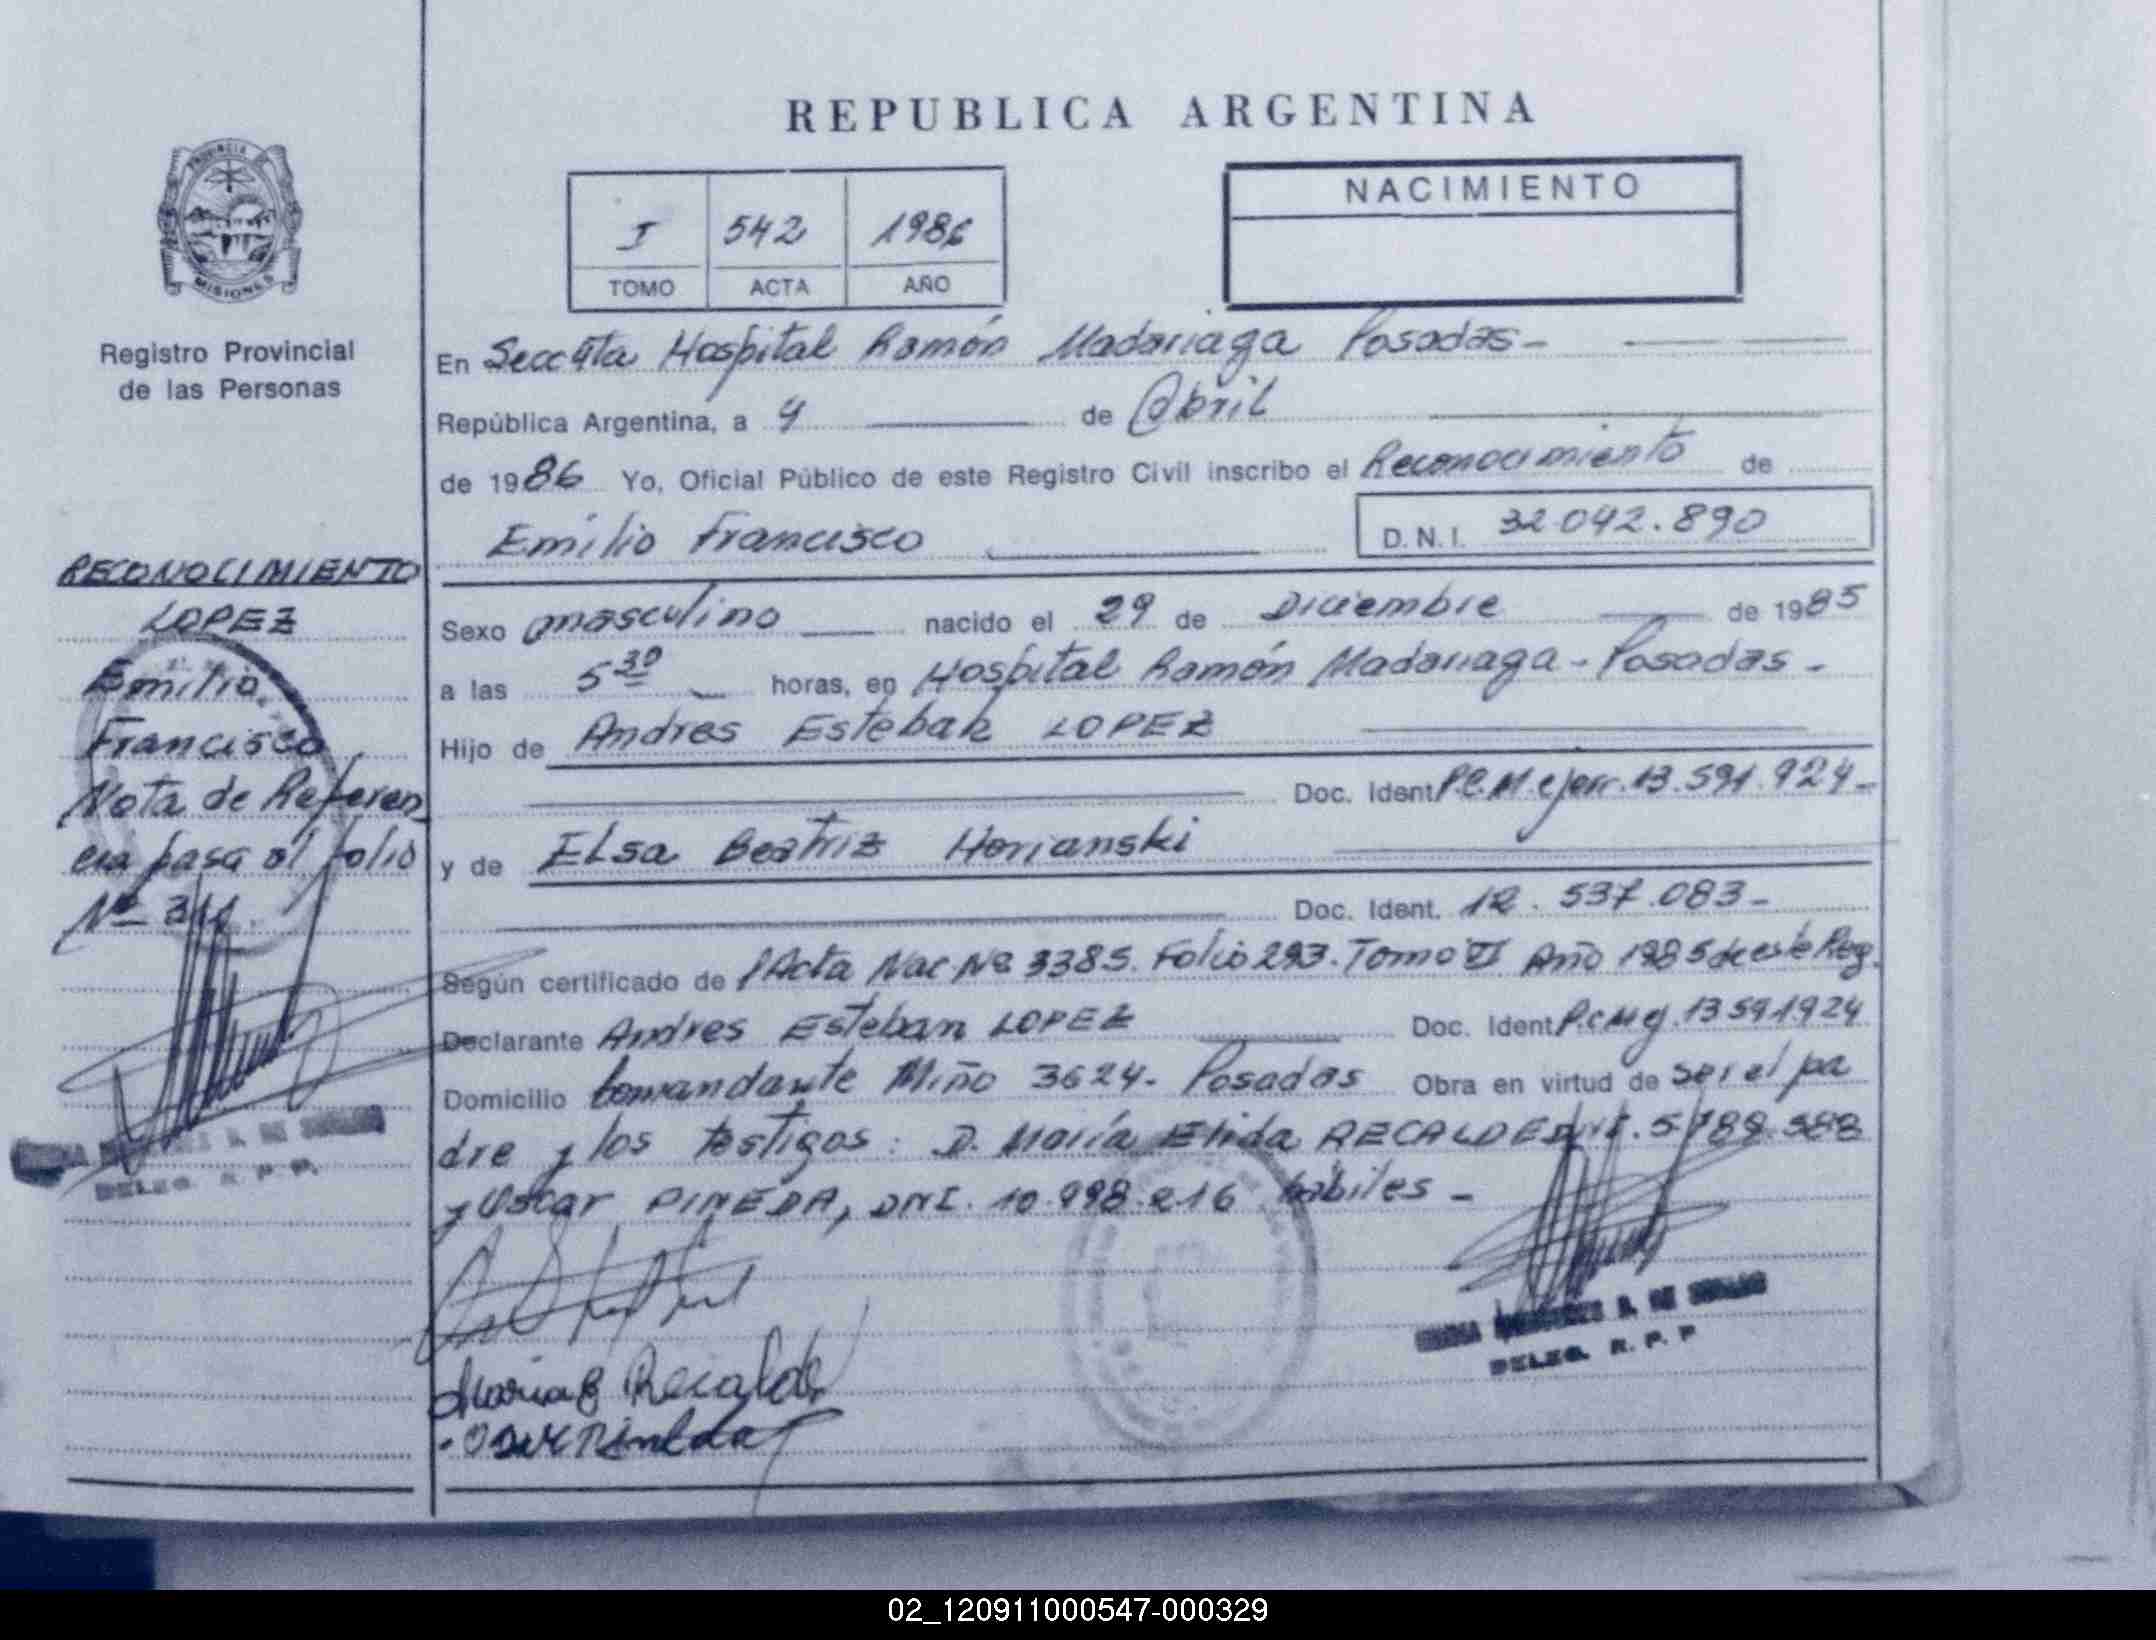 REPUBLICA ARGENTINA
PROVINCIA DE
MISIONES
Registro Provincial
de las Personas
I 542 1986
TOMO ACTA AÑO
NACIMIENTO
En Secc 4ta Hospital Ramón Madariaga Posadas-
República Argentina, a 4 de Abril
de 1986 Yo, Oficial Público de este Registro Civil inscribo el Reconocimiento de
Emilio Francisco D.N.I. 32.042.890
Sexo masculino nacido el 29 de Diciembre de 1985
a las 5 30 horas, en Hospital Ramón Madariaga - Posadas -
Hijo de Andres Esteban LOPEZ
Doc. Ident. 13.591.924-
y de Elsa Beatriz Horianski
Doc. Ident. 12.537.083-
Según certificado de Acta Nac Nº 3385. Folio 293. Tomo VI Año 1985 de este Reg.
Declarante Andres Esteban LOPEZ Doc. Ident 13591924
Domicilio Comandante Miño 3624- Posadas Obra en virtud de ser el pa
dre y los testigos: D. María Elida RECALDE
y Oscar PINEDA, DNI. 10.998.216 hábiles -
Maria E Recalde
Oscar Pineda
DELEG. R. P. P.
RECONOCIMIENTO
LOPEZ
Emilio
Francisco
Nota de Referen
cia pasa al folio
Nº
DELEG. R. P. P.
02_120911000547-000329